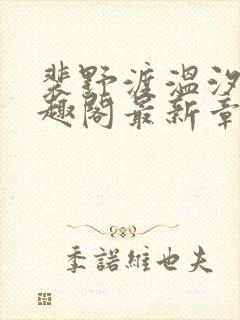 裴野渡温汐
趣阁最新章
季諾維也夫